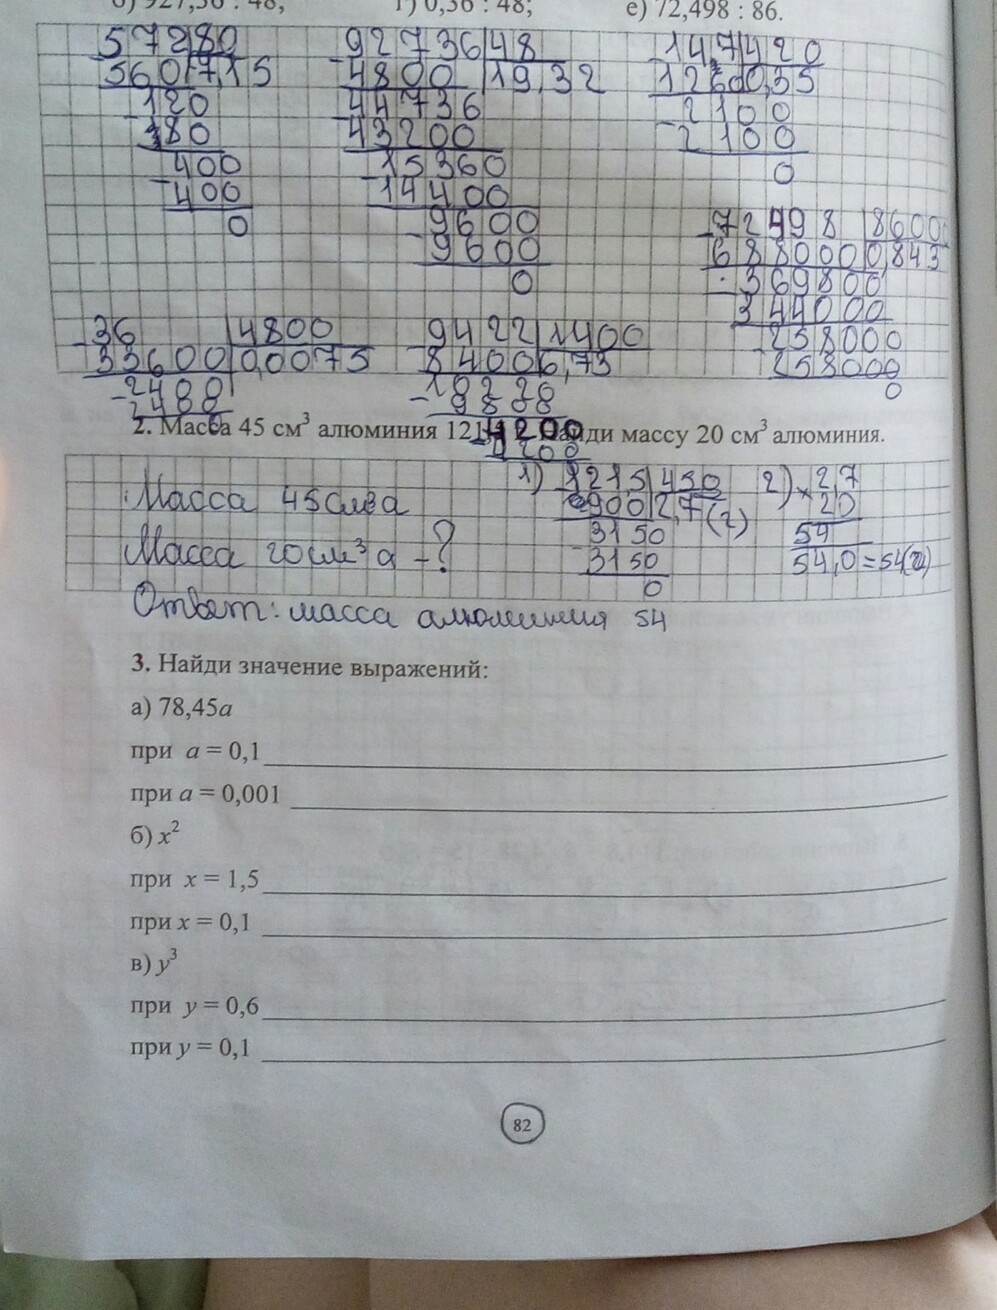 б) 927,36 : 48; г) 0,36 : 48; е) 72,498 : 86.
572|80
560 7,15
120
80
400
400
0
92736|48
4800 19,32
44736
43200
15360
14400
9600
9600
0
14,7|420
1260 0,35
2100
2100
0
72498 |8600
688000 0,843
369800
344000
258000
258000
0
36 |4800
33600 0,0075
9422|1400
8400 6,73
4200
4200
2. Масса 45 см³ алюминия 121 Найди массу 20 см³ алюминия.
Масса 45
Масса 20 см³ а - ?
1) 1215|450
900 2,7 (г)
3150
3150
0
2) × 2,7
20
54
54,0 = 54
Ответ: масса алюминия 54
3. Найди значение выражений:
а) 78,45a
при a = 0,1
при a = 0,001
б) x²
при x = 1,5
при x = 0,1
в) y³
при y = 0,6
при y = 0,1
82